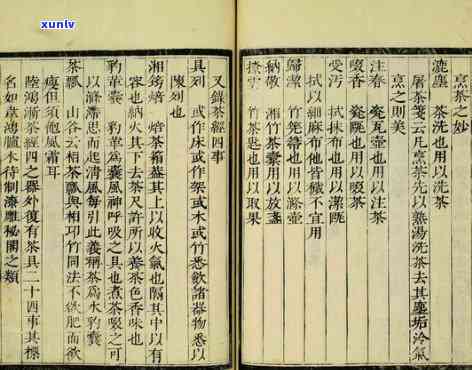 xunlv
烹茶之妙
漉塵 茶洗也用以洗茶
屠茶箋云凡烹茶先以熱湯洗茶去其塵垢冷氣
烹之則美
注春 瓷瓦壺也用以注茶
啜香 瓷甌也用以啜茶
受汚 拭抹布也用以潔甌
拭以細麻布他皆穢不宜用
歸潔 竹筅箒也用以滌壺
納敬 湘竹茶橐用以放盞
撩雲 竹茶匙也用以取果
又錄茶經四事
具列 或作床或作架或木或竹悉斂諸器物悉以
陳列也
湘筠焙 焙茶箱蓋其上以收火氣也隔其中以有
容也納火其下去茶尺許所以養茶色香味也
豹革囊 豹革爲囊風神呼吸之具也煮茶啜之可
以滌滯思而起清風每引此義稱茶爲水豹囊
茶瓢 山谷云相茶瓢與相邛竹同法不欲肥而欲
瘦但須飽風霜耳
陸鴻漸茶經四之器外復有茶具二十四事其標
名如韋鴻臚水待制漆雕秘閣之類